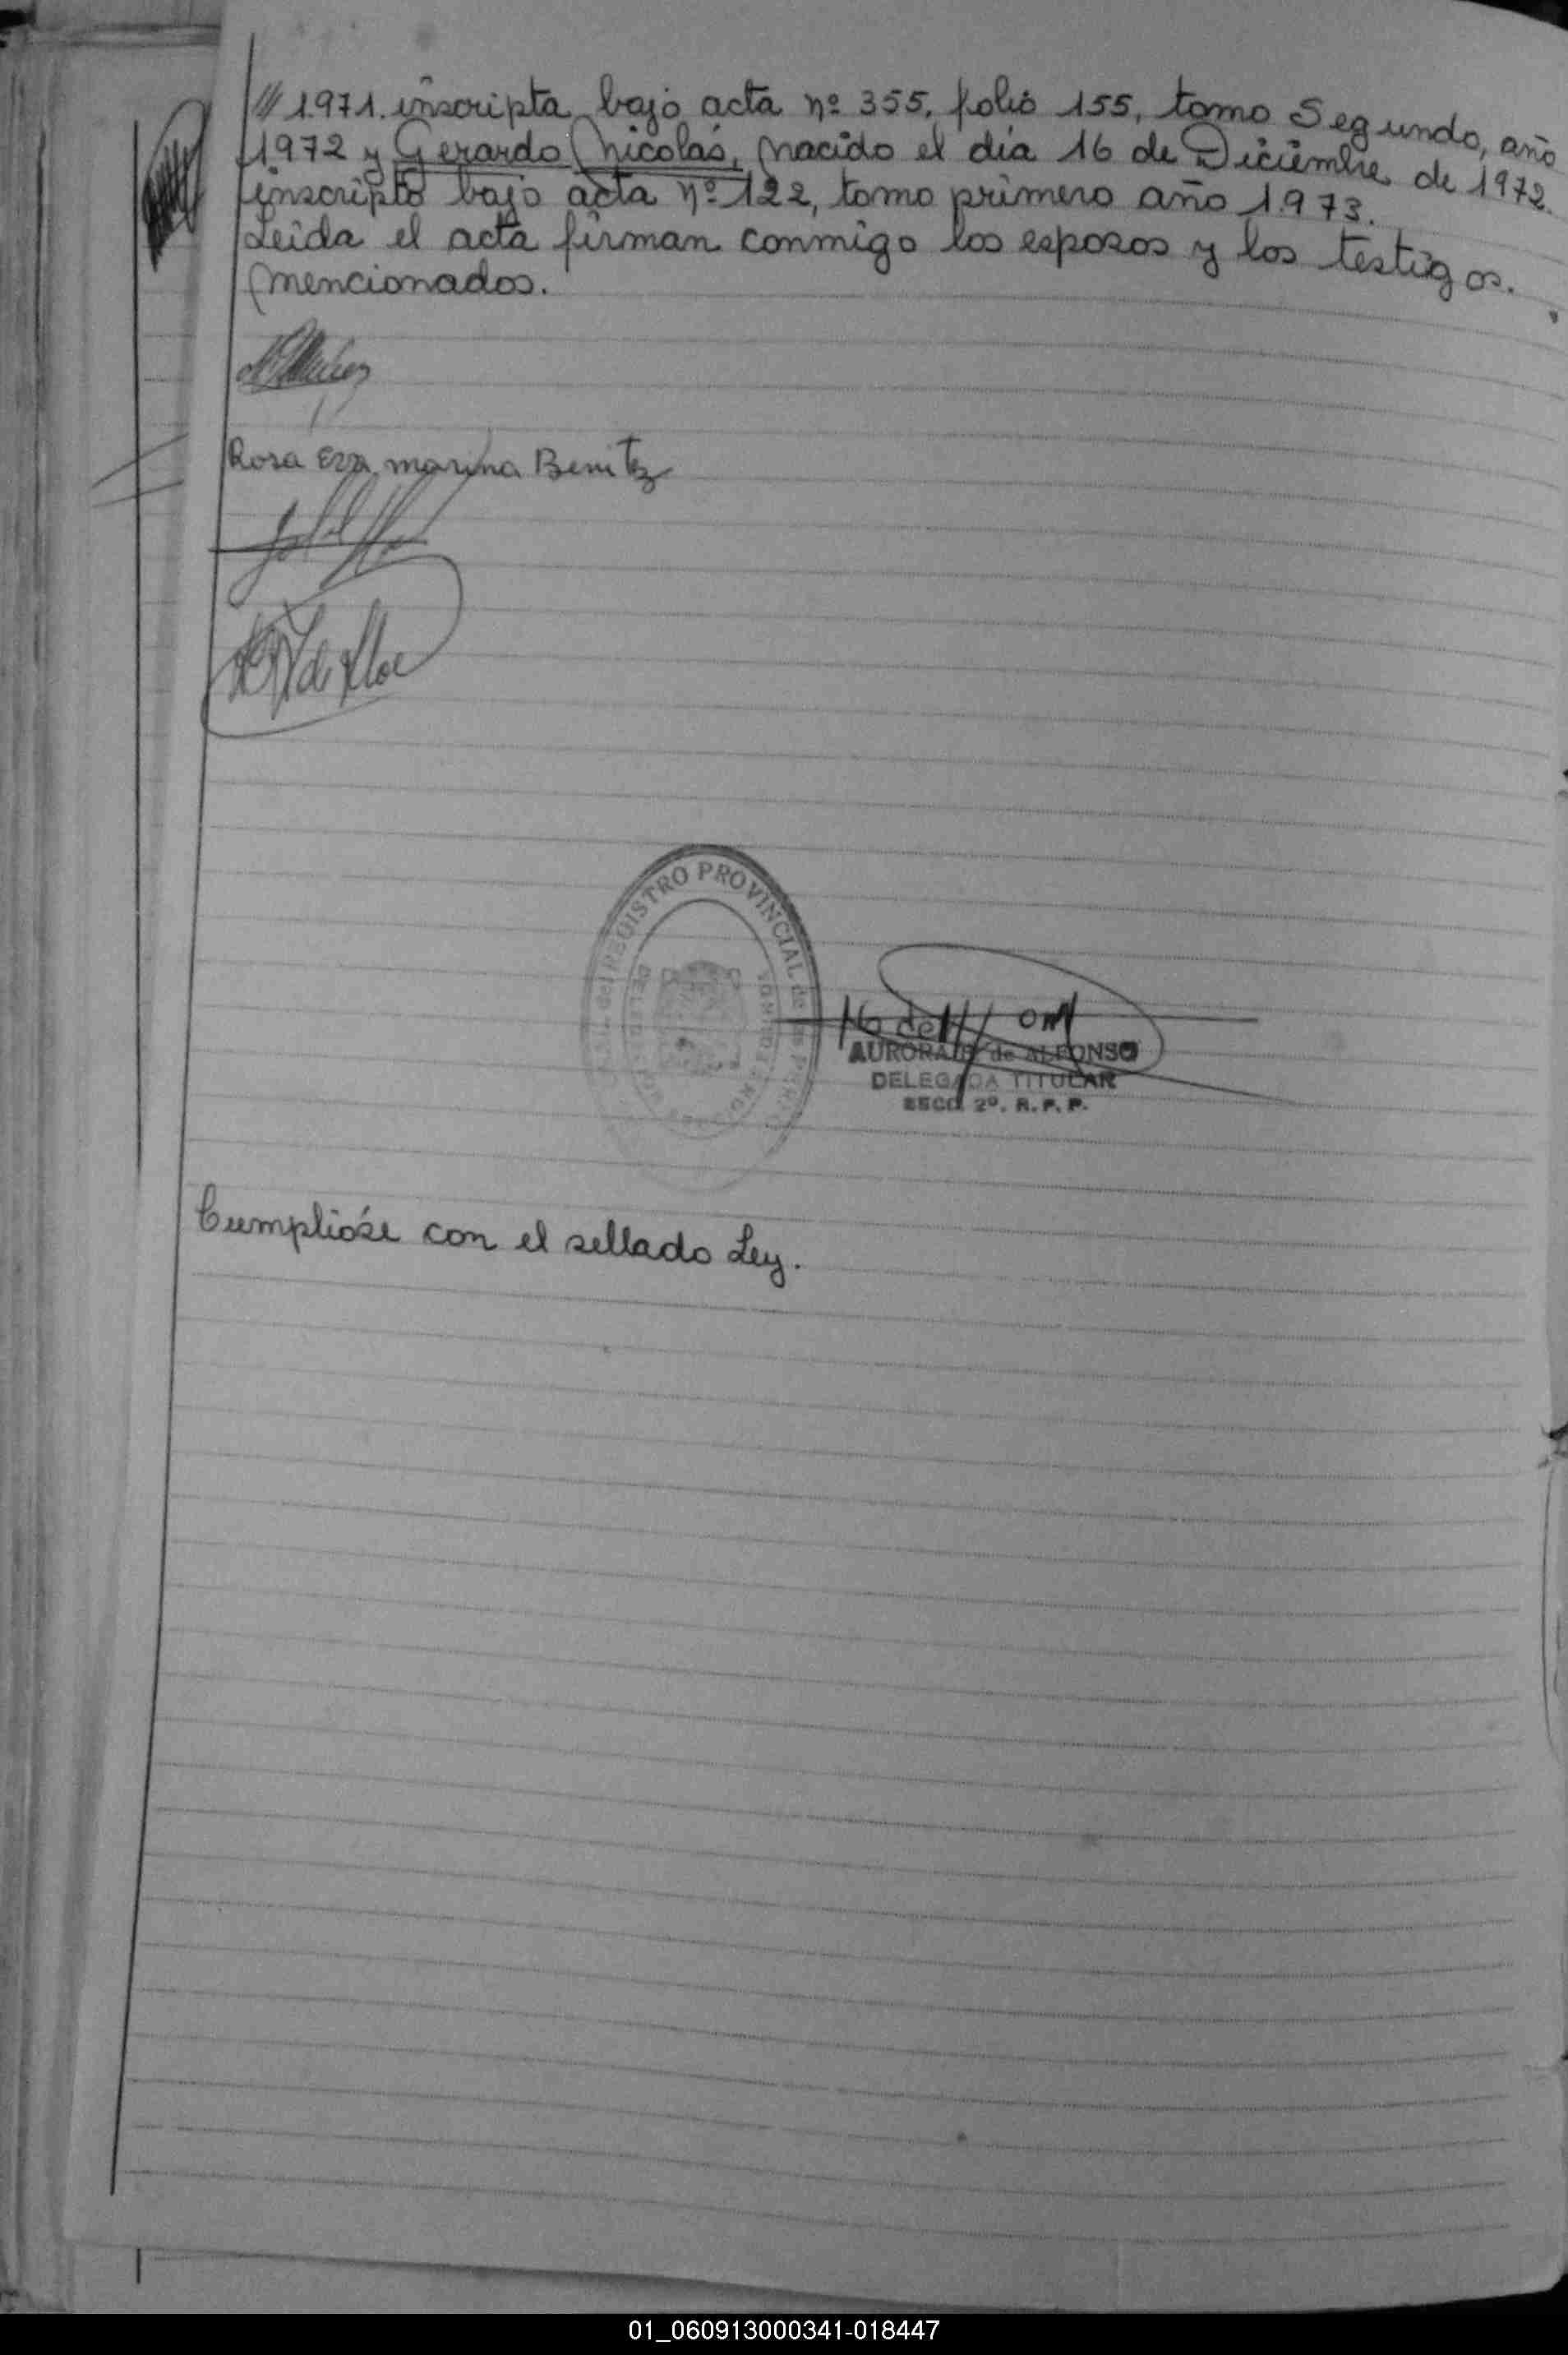 /// 1.971. inscripta bajo acta nº 355, folio 155, tomo Segundo, año
1972 y Gerardo Nicolás, nacido el día 16 de Diciembre de 1972.
inscripto bajo acta nº 122, tomo primero año 1.973.
Leida el acta firman conmigo los esposos y los testigos.
mencionados.
Rosa Eva marina Benitez
REGISTRO PROVINCIAL de las
AURORA de ALFONSO
DELEGADA TITULAR
2º. R. P. P.
Cumplióse con el sellado Ley.
01_060913000341-018447